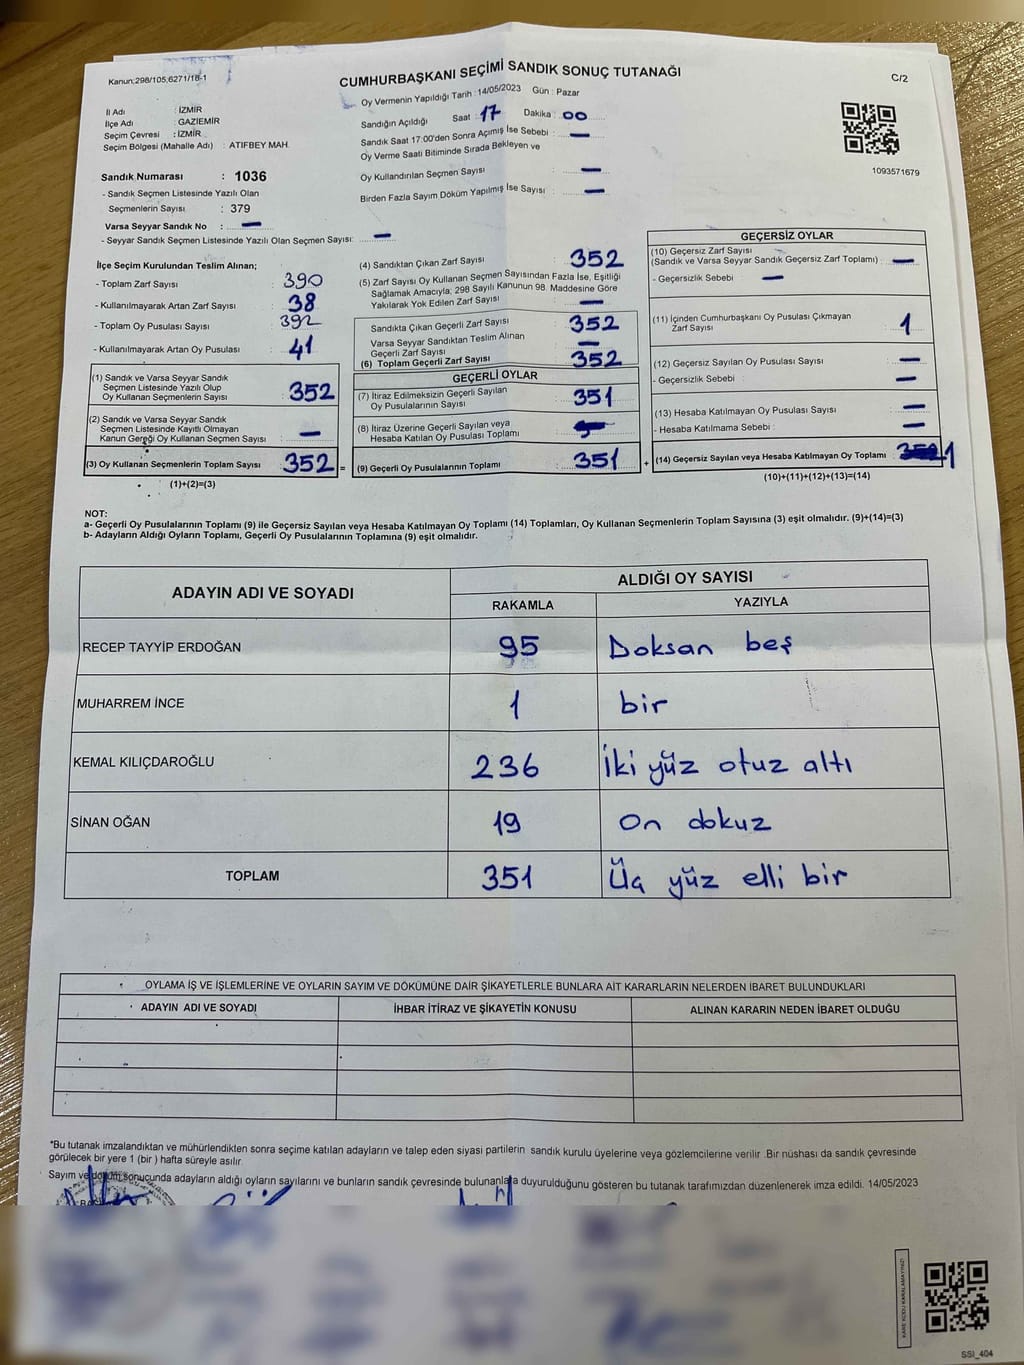 Kanun:298/105,6271/18-1
CUMHURBAŞKANI SEÇİMİ SANDIK SONUÇ TUTANAĞI
C/2
Oy Vermenin Yapıldığı Tarih : 14/05/2023 Gün : Pazar
İl Adı : İZMİR
İlçe Adı : GAZİEMİR
Seçim Çevresi : İZMİR
Seçim Bölgesi (Mahalle Adı) : ATIFBEY MAH.
Sandığın Açıldığı Saat : 17 Dakika : 00
Sandık Saat 17:00'den Sonra Açımış İse Sebebi : —
Oy Verme Saati Bitiminde Sırada Bekleyen ve
Oy Kullandırılan Seçmen Sayısı : —
Birden Fazla Sayım Döküm Yapılmış İse Sayısı : —
1093571679
Sandık Numarası : 1036
- Sandık Seçmen Listesinde Yazılı Olan
Seçmenlerin Sayısı : 379
Varsa Seyyar Sandık No : —
- Seyyar Sandık Seçmen Listesinde Yazılı Olan Seçmen Sayısı: —
İlçe Seçim Kurulundan Teslim Alınan;
- Toplam Zarf Sayısı : 390
- Kullanılmayarak Artan Zarf Sayısı : 38
- Toplam Oy Pusulası Sayısı : 392
- Kullanılmayarak Artan Oy Pusulası : 41
(1) Sandık ve Varsa Seyyar Sandık
Seçmen Listesinde Yazılı Olup
Oy Kullanan Seçmenlerin Sayısı : 352
(2) Sandık ve Varsa Seyyar Sandık
Seçmen Listesinde Kayıtlı Olmayan
Kanun Gereği Oy Kullanan Seçmen Sayısı : —
(3) Oy Kullanan Seçmenlerin Toplam Sayısı : 352 =
(1)+(2)=(3)
(4) Sandıktan Çıkan Zarf Sayısı : 352
(5) Zarf Sayısı Oy Kullanan Seçmen Sayısından Fazla İse, Eşitliği
Sağlamak Amacıyla; 298 Sayılı Kanunun 98. Maddesine Göre
Yakılarak Yok Edilen Zarf Sayısı : —
Sandıkta Çıkan Geçerli Zarf Sayısı : 352
Varsa Seyyar Sandıktan Teslim Alınan
Geçerli Zarf Sayısı : —
(6) Toplam Geçerli Zarf Sayısı : 352
GEÇERLİ OYLAR
(7) İtiraz Edilmeksizin Geçerli Sayılan
Oy Pusulalarının Sayısı : 351
(8) İtiraz Üzerine Geçerli Sayılan veya
Hesaba Katılan Oy Pusulası Toplamı :
(9) Geçerli Oy Pusulalarının Toplamı : 351 +
GEÇERSİZ OYLAR
(10) Geçersiz Zarf Sayısı
(Sandık ve Varsa Seyyar Sandık Geçersiz Zarf Toplamı) : —
- Geçersizlik Sebebi : —
(11) İçinden Cumhurbaşkanı Oy Pusulası Çıkmayan
Zarf Sayısı : 1
(12) Geçersiz Sayılan Oy Pusulası Sayısı : —
- Geçersizlik Sebebi : —
(13) Hesaba Katılmayan Oy Pusulası Sayısı : —
- Hesaba Katılmama Sebebi : —
(14) Geçersiz Sayılan veya Hesaba Katılmayan Oy Toplamı : 1
(10)+(11)+(12)+(13)=(14)
NOT:
a- Geçerli Oy Pusulalarının Toplamı (9) ile Geçersiz Sayılan veya Hesaba Katılmayan Oy Toplamı (14) Toplamları, Oy Kullanan Seçmenlerin Toplam Sayısına (3) eşit olmalıdır. (9)+(14)=(3)
b- Adayların Aldığı Oyların Toplamı, Geçerli Oy Pusulalarının Toplamına (9) eşit olmalıdır.
ADAYIN ADI VE SOYADI
ALDIĞI OY SAYISI
RAKAMLA YAZIYLA
RECEP TAYYİP ERDOĞAN 95 Doksan beş
MUHARREM İNCE 1 bir
KEMAL KILIÇDAROĞLU 236 İki yüz otuz altı
SİNAN OĞAN 19 on dokuz
TOPLAM 351 Üç yüz elli bir
OYLAMA İŞ VE İŞLEMLERİNE VE OYLARIN SAYIM VE DÖKÜMÜNE DAİR ŞİKAYETLERLE BUNLARA AİT KARARLARIN NELERDEN İBARET BULUNDUKLARI
ADAYIN ADI VE SOYADI İHBAR İTİRAZ VE ŞİKAYETİN KONUSU ALINAN KARARIN NEDEN İBARET OLDUĞU
*Bu tutanak imzalandıktan ve mühürlendikten sonra seçime katılan adayların ve talep eden siyasi partilerin sandık kurulu üyelerine veya gözlemcilerine verilir .Bir nüshası da sandık çevresinde
görülecek bir yere 1 (bir ) hafta süreyle asılır.
Sayım ve döküm sonucunda adayların aldığı oyların sayılarını ve bunların sandık çevresinde bulunanlara duyurulduğunu gösteren bu tutanak tarafımızdan düzenlenerek imza edildi. 14/05/2023
KARE KODU KARALAMAYINIZ!
SSI_404